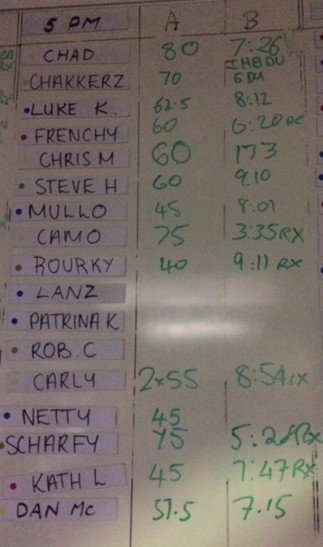 5 PM A B
CHAD 80 7:26
CHAKKERZ 70 1HBDU
6DU
LUKE K. 62.5 8:12
FRENCHY 60 6:20
CHRIS M 60 173
STEVE H 60 9.10
MULLO 45 8.01
CAMO 75 3:35 RX
ROURKY 40 9:11 RX
LANZ
PATRINA K
ROB. C
CARLY 2x55 8:54
NETTY 45
SCHARFY 75 5:28 Rx
KATH L 45 7:47 RX
DAN Mc 57.5 7.15